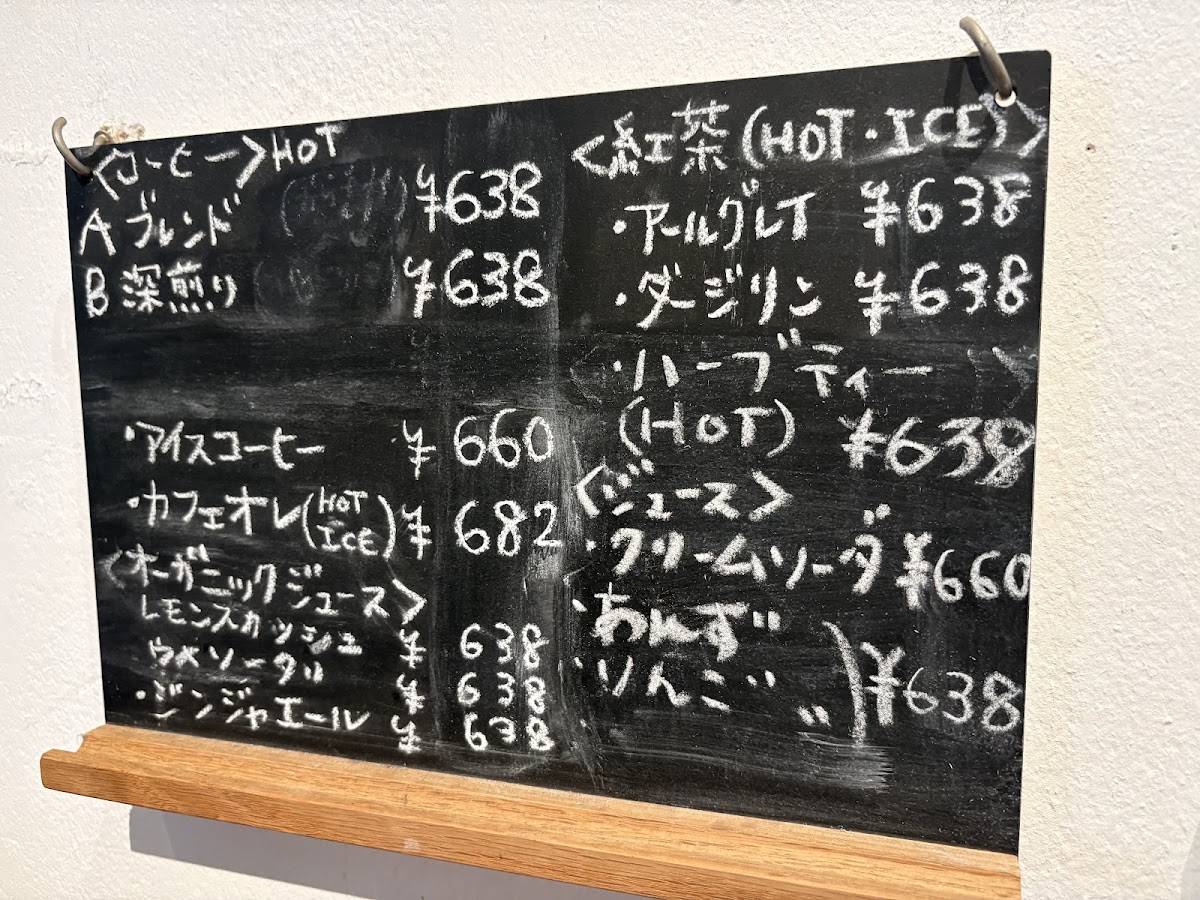 <コーヒー>HOT
A ブレンド ¥638
B 深煎り ¥638
・アイスコーヒー ¥660
・カフェオレ(HOT ICE) ¥682
<オーガニックジュース>
レモンスカッシュ ¥638
ウメソーダ ¥638
・ジンジャエール ¥638
<紅茶(HOT・ICE)>
・アールグレイ ¥638
・ダージリン ¥638
・ハーブティー
(HOT) ¥638
<ジュース>
・クリームソーダ ¥660
・あんず〃
・りんご〃 〃 ) ¥638